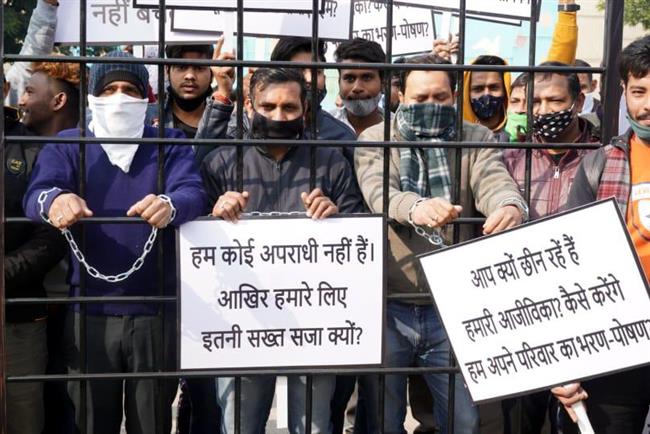 नहीं
भरण-पोषण
हम कोई अपराधी नहीं हैं।
आखिर हमारे लिए
इतनी सख्त सजा क्यों?
आप क्यों छीन रहें हैं
हमारी आजीविका? कैसे करेंगे
हम अपने परिवार का भरण-पोषण?